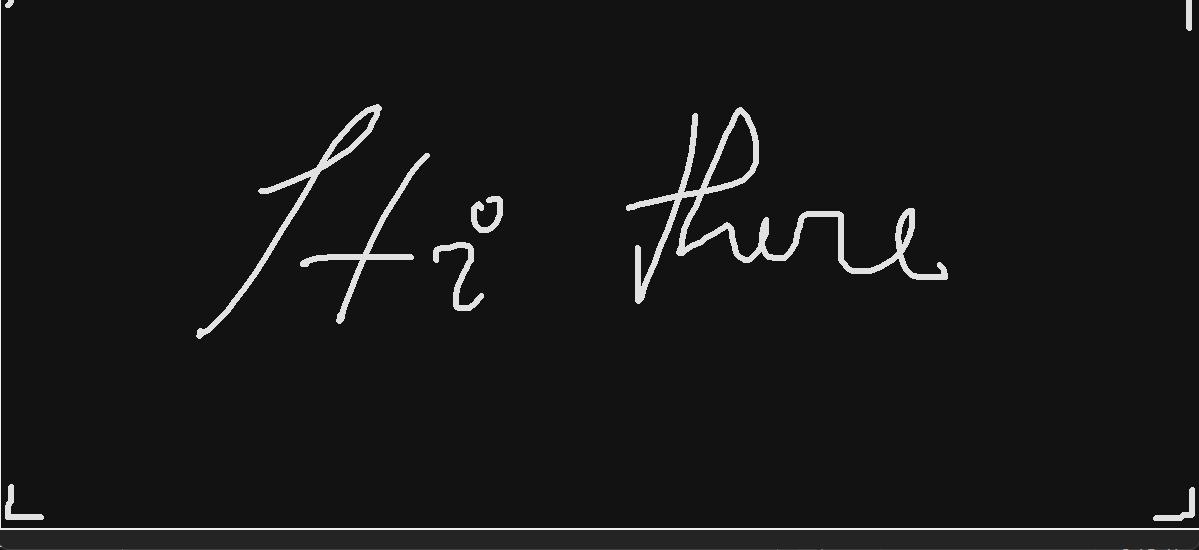 Hi there